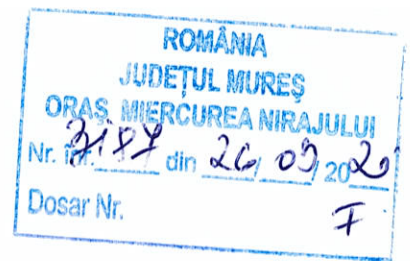 ROMÂNIA
JUDEȚUL MUREȘ
ORAȘ MIERCUREA NIRAJULUI
Nr. înr. 3187 din 26/ 03/ 2020
Dosar Nr.